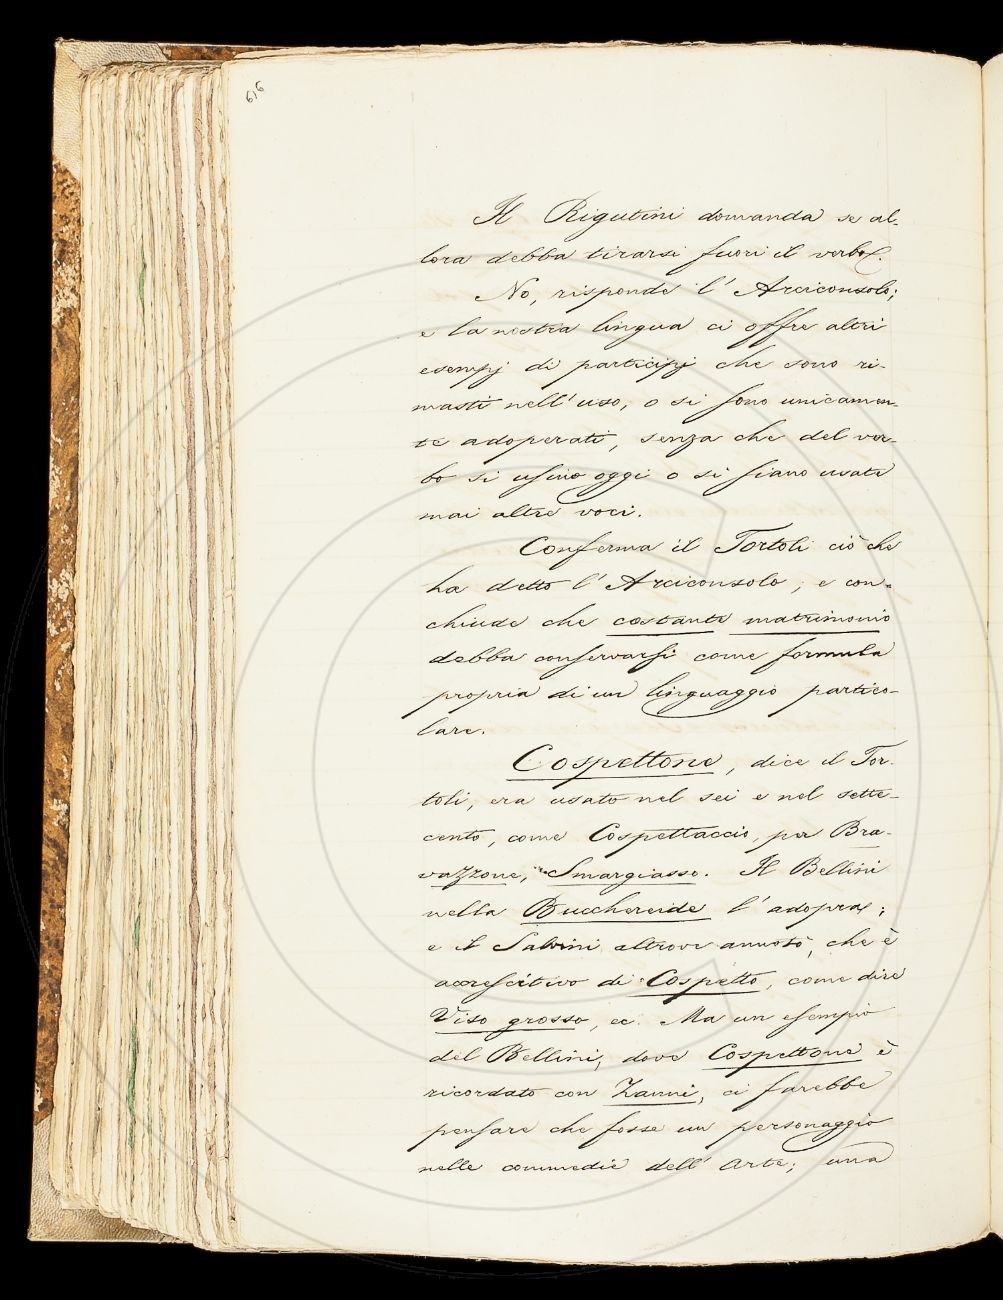 616
Il Rigutini domanda se al-
lora debba tirarsi fuori il verbo.
No, risponde l'Arciconsolo;
e la nostra lingua ci offre altri
esempj di participj che sono ri-
masti nell'uso, o si sono unicamen-
te adoperati, senza che del ver-
bo si usino oggi o si siano usate
mai altre voci.
Conferma il Tortoli ciò che
ha detto l'Arciconsolo; e con-
chiude che costante matrimonio
debba conservarsi come formula
propria di un linguaggio partico-
lare.
Cospettone, dice il Tor-
toli, era usato nel sei e nel sette-
cento, come Cospettaccio, per Bra-
vazzone, Smargiasso. Il Bellini
nella Bucchereide l'adopra;
e il Salvini altrove annotò, che è
accrescitivo di Cospetto, come dire
Viso grosso, ec. Ma un esempio
del Bellini, dove Cospettone è
ricordato con Zanni, ci farebbe
pensare che fosse un personaggio
nelle commedie dell'Arte; una